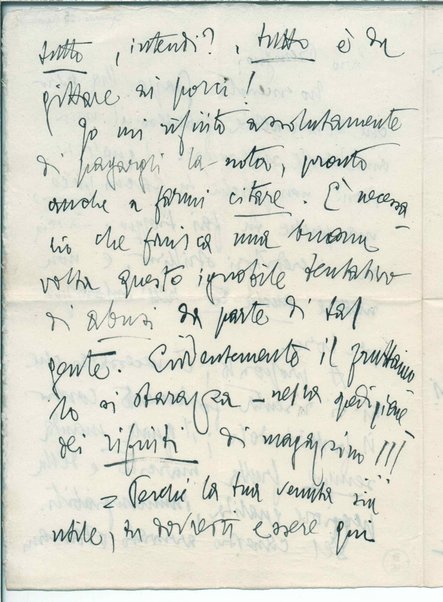 tutto, intendi?, tutto è da
gittare ai porci!
Io mi rifiuto assolutamente
di pagargli la nota, pronto
anche a farmi citare. È necessa-
rio che finisca una buona
volta questo ignobile tentativo
di abusi da parte di tal
gente. Evidentemente il fruttaiuo
lo si sbarazza – nella spedizione
dei rifiuti di magazzino!!!
= Perché la tua venuta sia
utile, tu dovresti essere qui